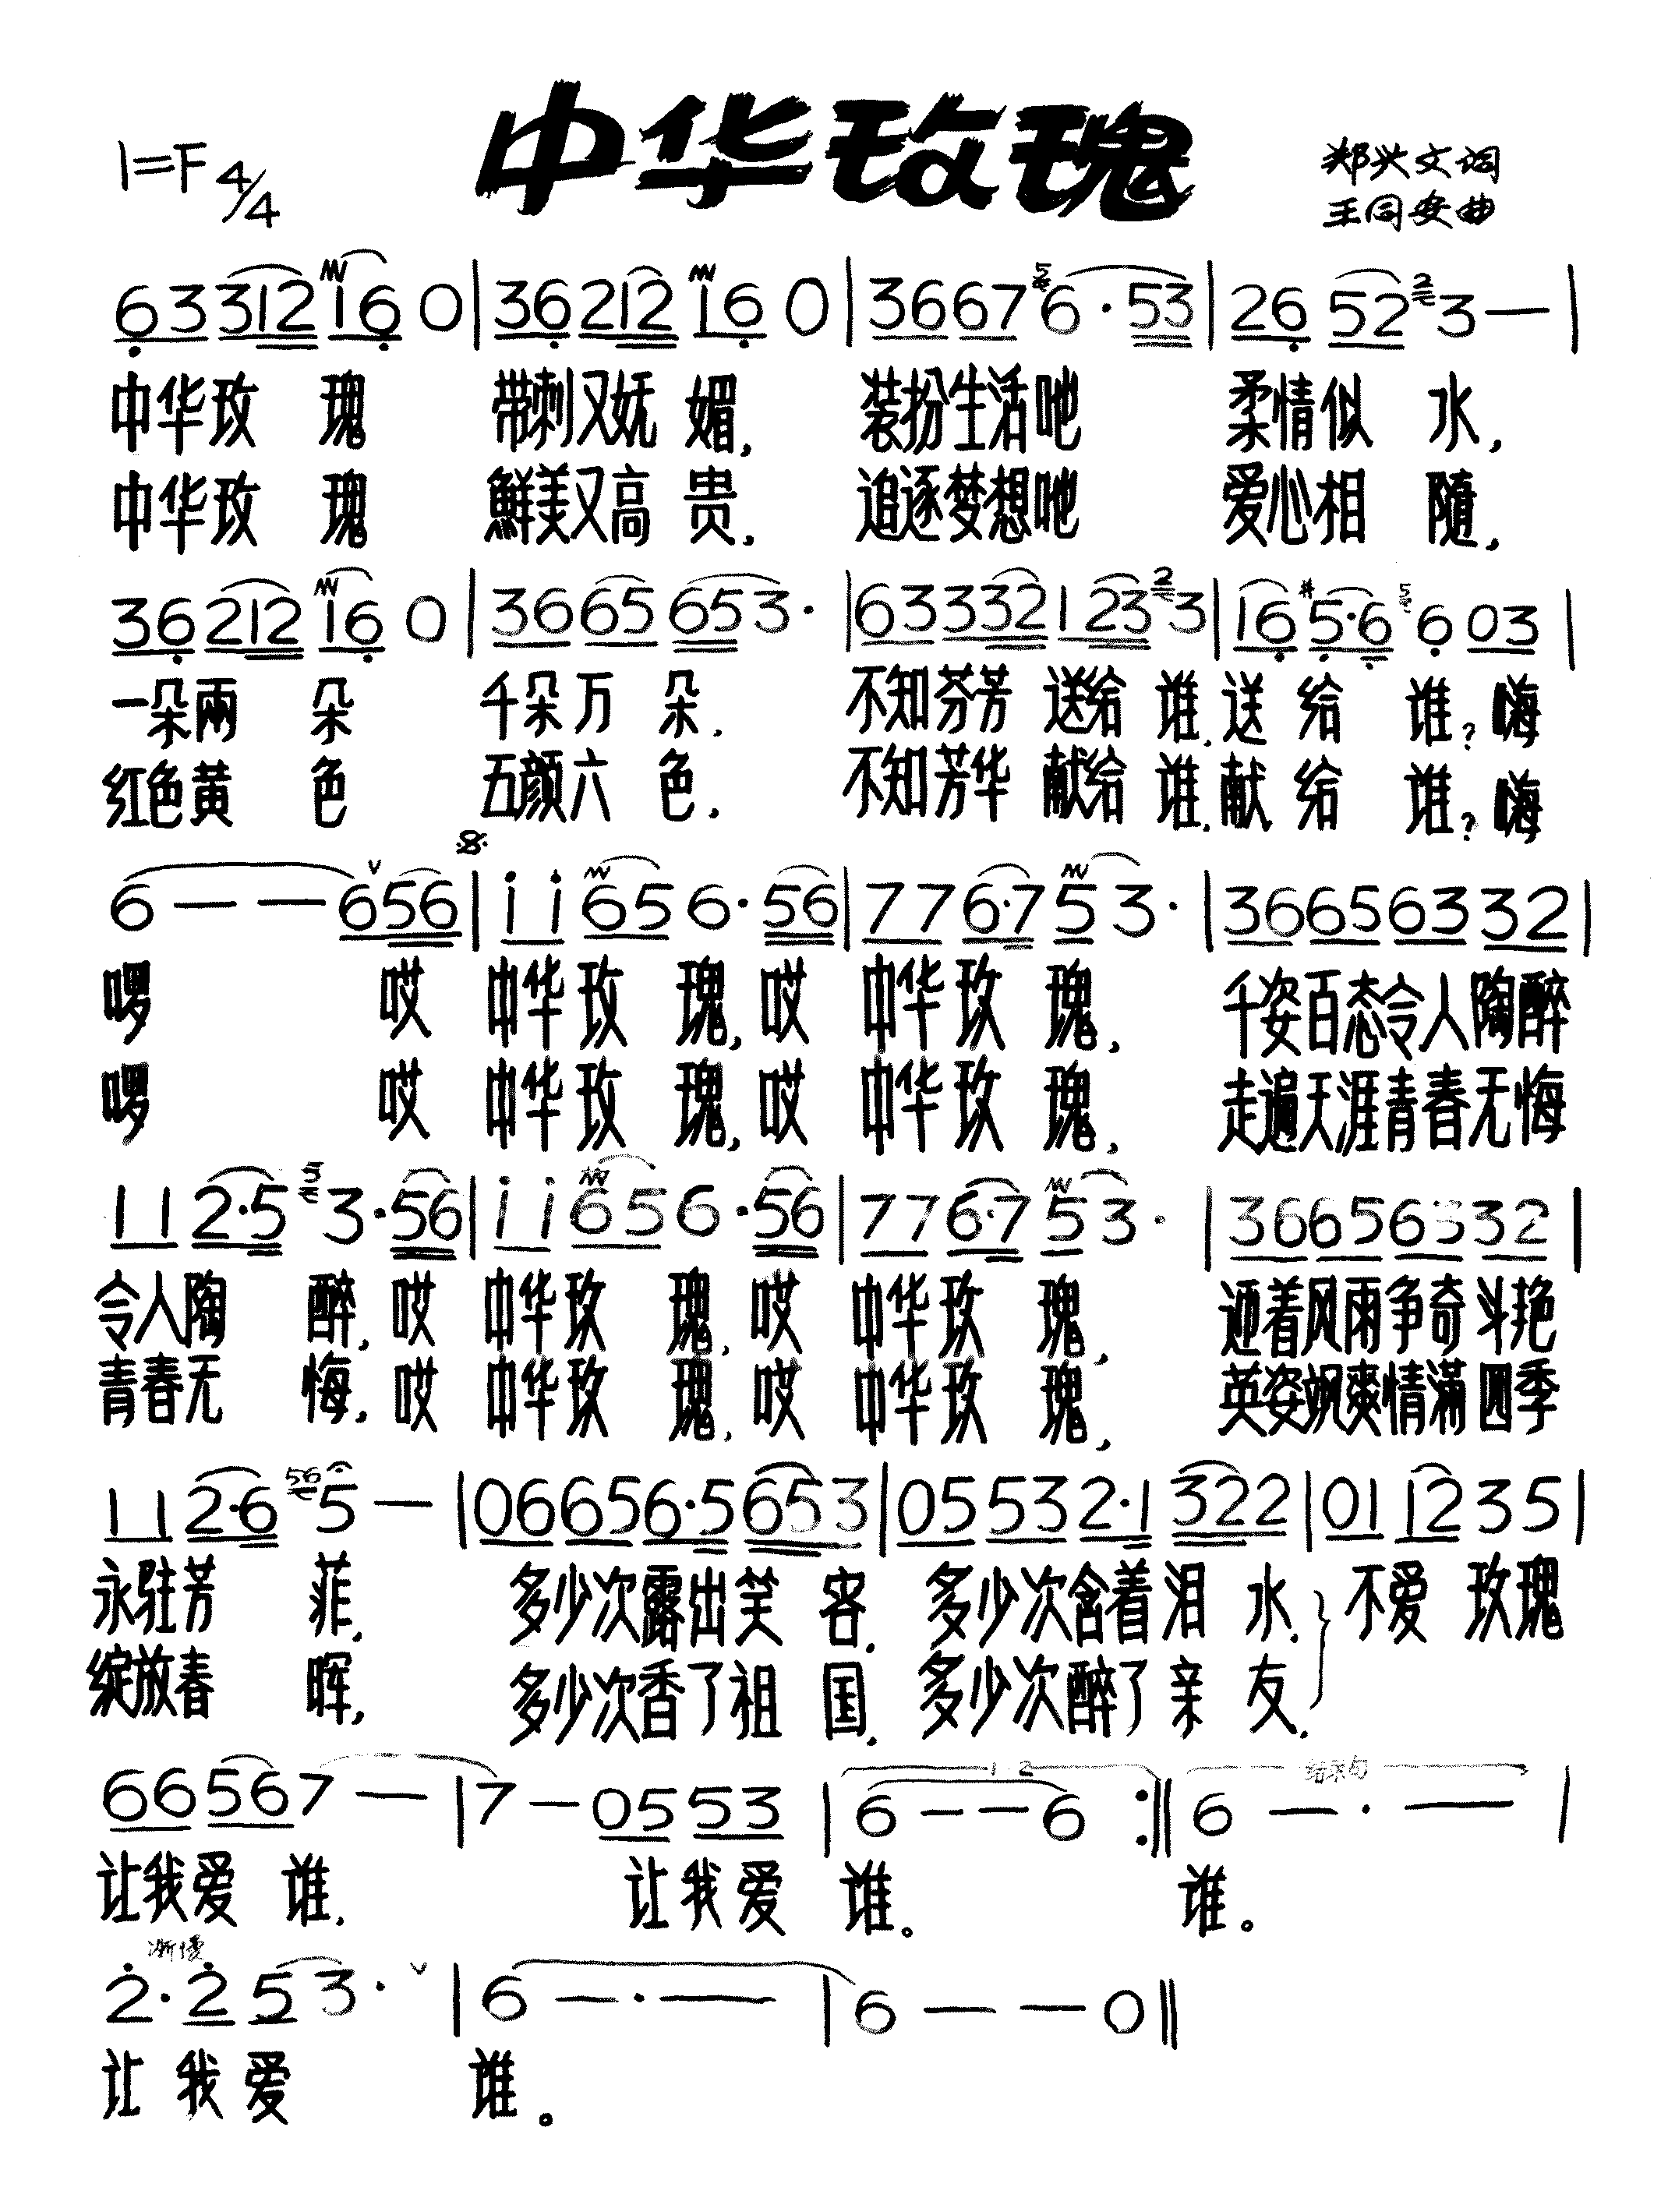 中华玫瑰
1=F 4/4
郑兴文词
王同安曲
6 3 3 1 2 1 6 0 | 3 6 2 1 2 1 6 0 | 3 6 6 7 5 6 · 5 3 | 2 6 5 2 2 3 — |
中华玫 瑰 带刺又妩 媚, 装扮生活吔 柔情似 水,
中华玫 瑰 鮮美又高 贵, 追逐梦想吔 爱心相 隨,
3 6 2 1 2 1 6 0 | 3 6 6 5 6 5 3 · | 6 3 3 3 2 1 2 3 2 3 | 1 6 #5 · 6 5 6 0 3 |
一朵兩 朵 千朵万 朵, 不知芬芳 送给 谁, 送 给 谁? 嗨
红色黄 色 五颜六 色, 不知芳华 献给 谁, 献 给 谁? 嗨
6 — — 6 5 6 | i i 6 5 6 · 5 6 | 7 7 6 · 7 5 3 · | 3 6 6 5 6 3 3 2 |
啰 哎 中华 玫 瑰, 哎 中华 玫 瑰, 千姿百态令人陶醉
啰 哎 中华 玫 瑰, 哎 中华 玫 瑰, 走遍天涯青春无悔
1 1 2 · 5 3 3 · 5 6 | i i 6 5 6 · 5 6 | 7 7 6 · 7 5 3 · | 3 6 6 5 6 3 3 2 |
令人陶 醉, 哎 中华 玫 瑰, 哎 中华 玫 瑰, 迎着风雨争奇斗艳
青春无 悔, 哎 中华 玫 瑰, 哎 中华 玫 瑰, 英姿飒爽情满四季
1 1 2 · 6 56 5 — | 0 6 6 5 6 · 5 6 5 3 | 0 5 5 3 2 · 1 3 2 2 | 0 1 1 2 3 5 |
永驻芳 菲, 多少次露出笑 容, 多少次含着泪 水, } 不爱 玫瑰
绽放春 晖, 多少次香了祖 国, 多少次醉了亲 友,
6 6 5 6 7 — | 7 — 0 5 5 3 | 1 2 6 — — 6 :‖ 结束句 6 — · — |
让我爱 谁, 让 我 爱 谁。 谁。
渐慢
2 · 2 5 3 · ∨ | 6 — · — | 6 — — 0 ‖
让 我 爱 谁。